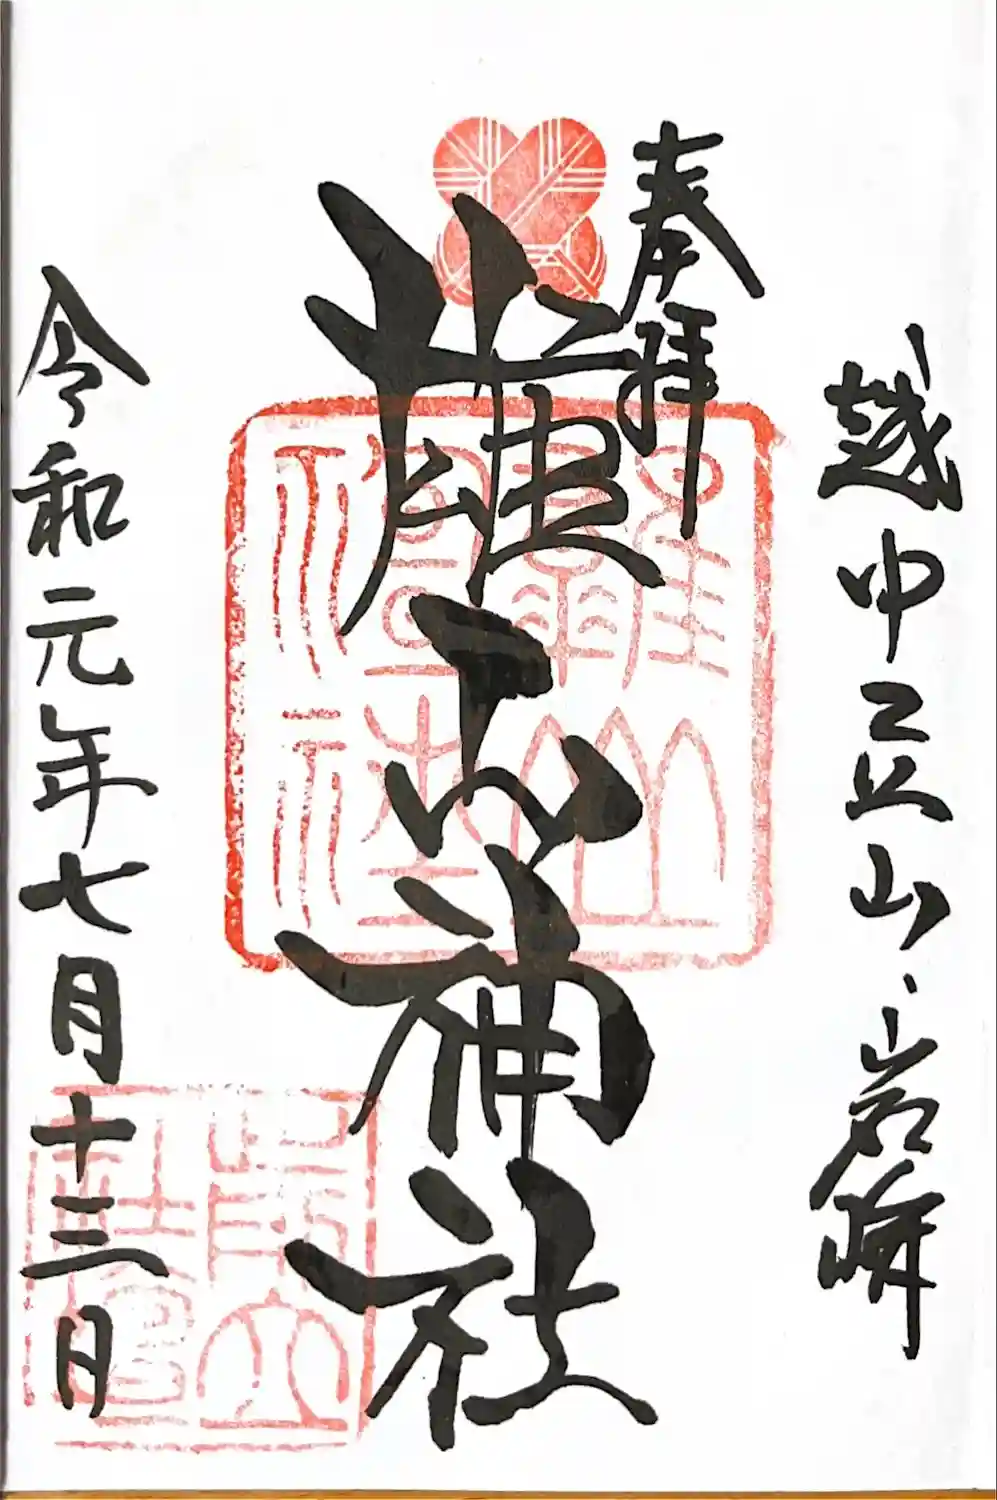 越中立山岩峅
奉拝
雄山神社
令和元年七月十三日
雄山
神社